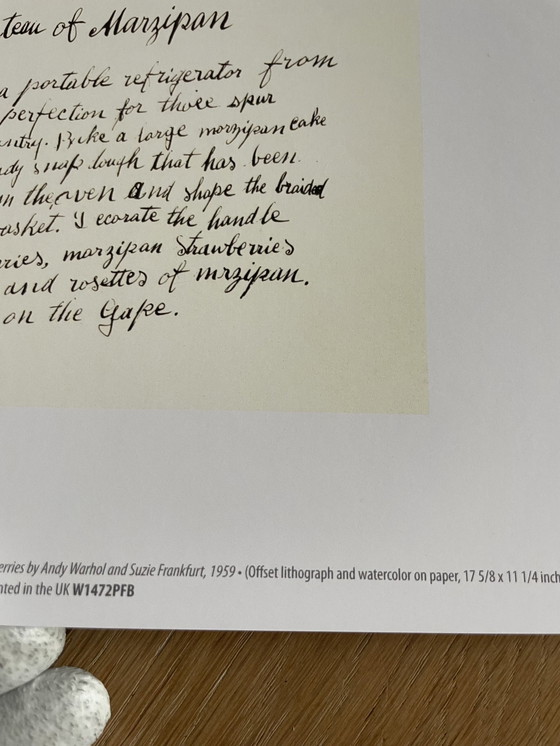 teau of Marzipan
a portable refrigerator from
perfection for those spur
entry. Bake a large marzipan cake
dy snap dough that has been
in the oven and shape the braided
asket. Decorate the handle
ries, marzipan strawberries
and rosettes of mrzipan.
on the Gape.
erries by Andy Warhol and Suzie Frankfurt, 1959 • (Offset lithograph and watercolor on paper, 17 5/8 x 11 1/4 inch
nted in the UK W1472PFB